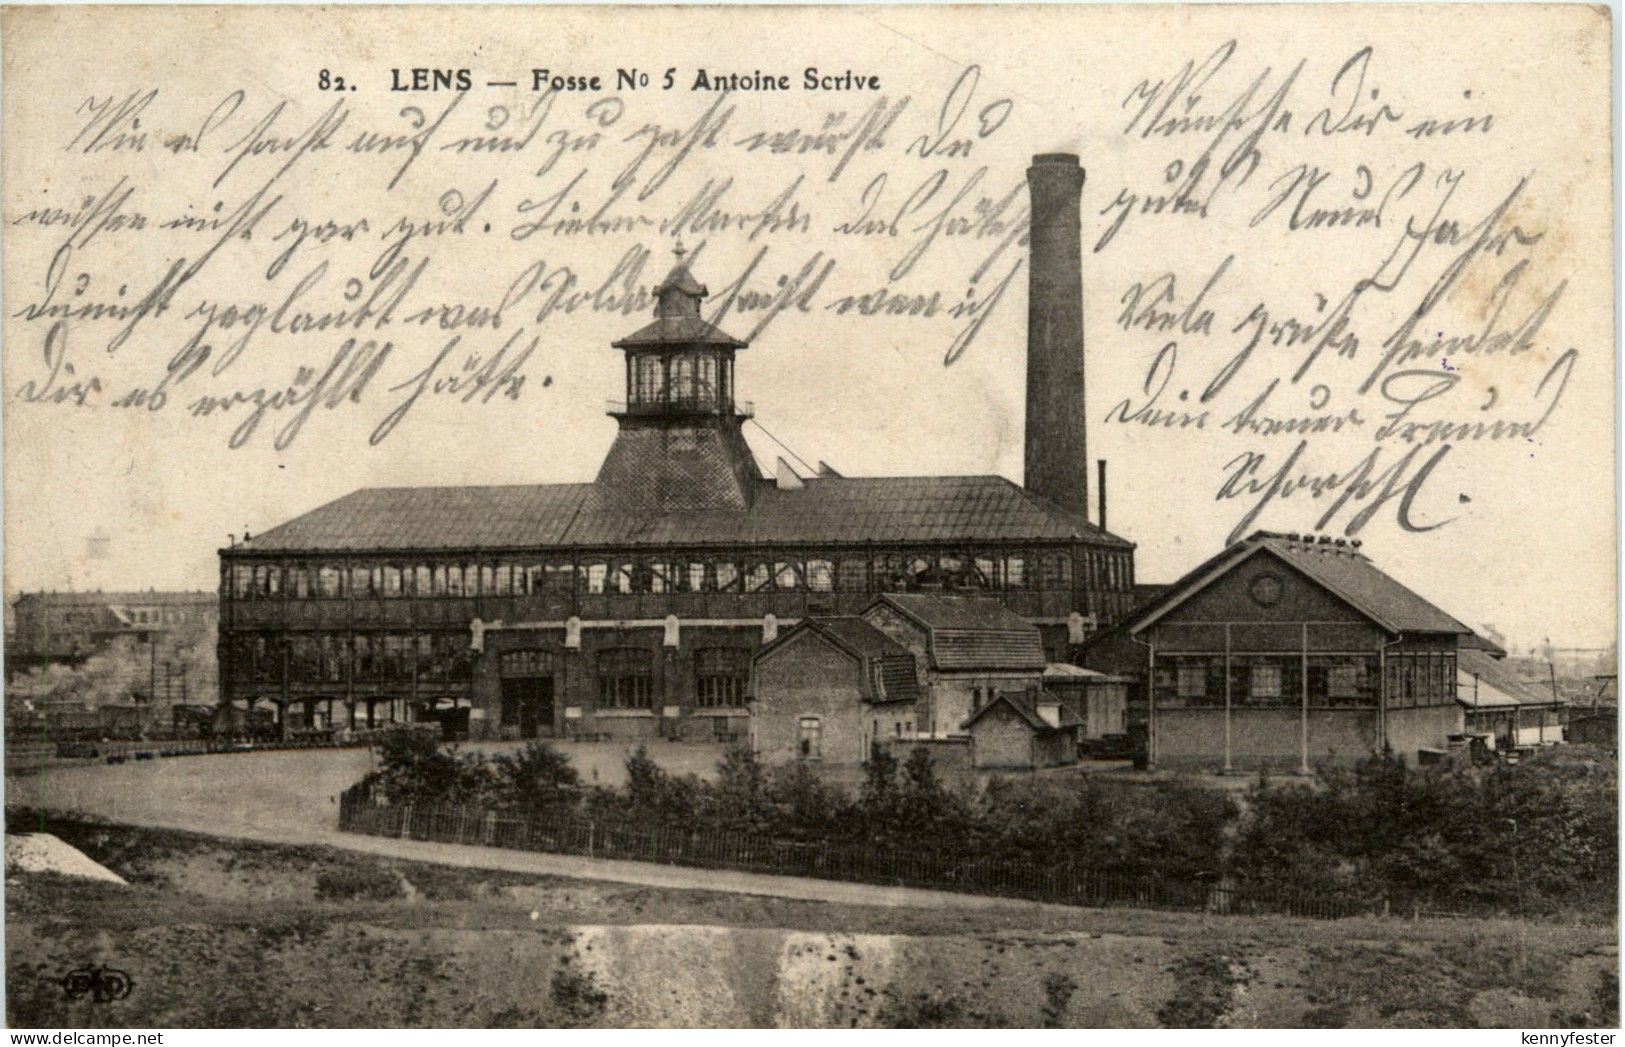 82. LENS — Fosse No 5 Antoine Scrive
Wie es sonst auf und zu geht würst Du
wüssen nicht gar gut. Lieber Martin das hätest
Du nicht geglaubt was Soldat heißt wen ich
Dir es erzählt hätte.
Wünsche Dir ein
gutes Neues Jahr
Viele grüße sendet
Dein treuer Freund
Schorschl.
ELD
kennyfester